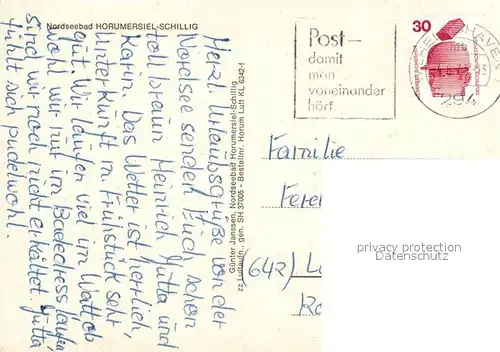 Nordseebad HORUMERSIEL-SCHILLIG
Herzl. Urlaubsgrüße von der
Nordsee senden Euch schon
tollbraun Heinrich, Jutta und
Karin. Das Wetter ist herrlich,
Unterkunft m. Frühstück sehr
gut. Wir laufen viel im Watt, ob
wohl wir nur im Badedress laufen,
sind wir noch nicht erkältet. Jutta
fühlt sich pudelwohl.
Günter Janssen, Nordseebad Horumersiel-Schillig
rz Luftaufn. gen. SH 37005 - Bestellnr. Horum Luft KL 6342-1
Post-
damit
man
voneinander
hört
30
294
Familie
(642)
privacy protection
Datenschutz